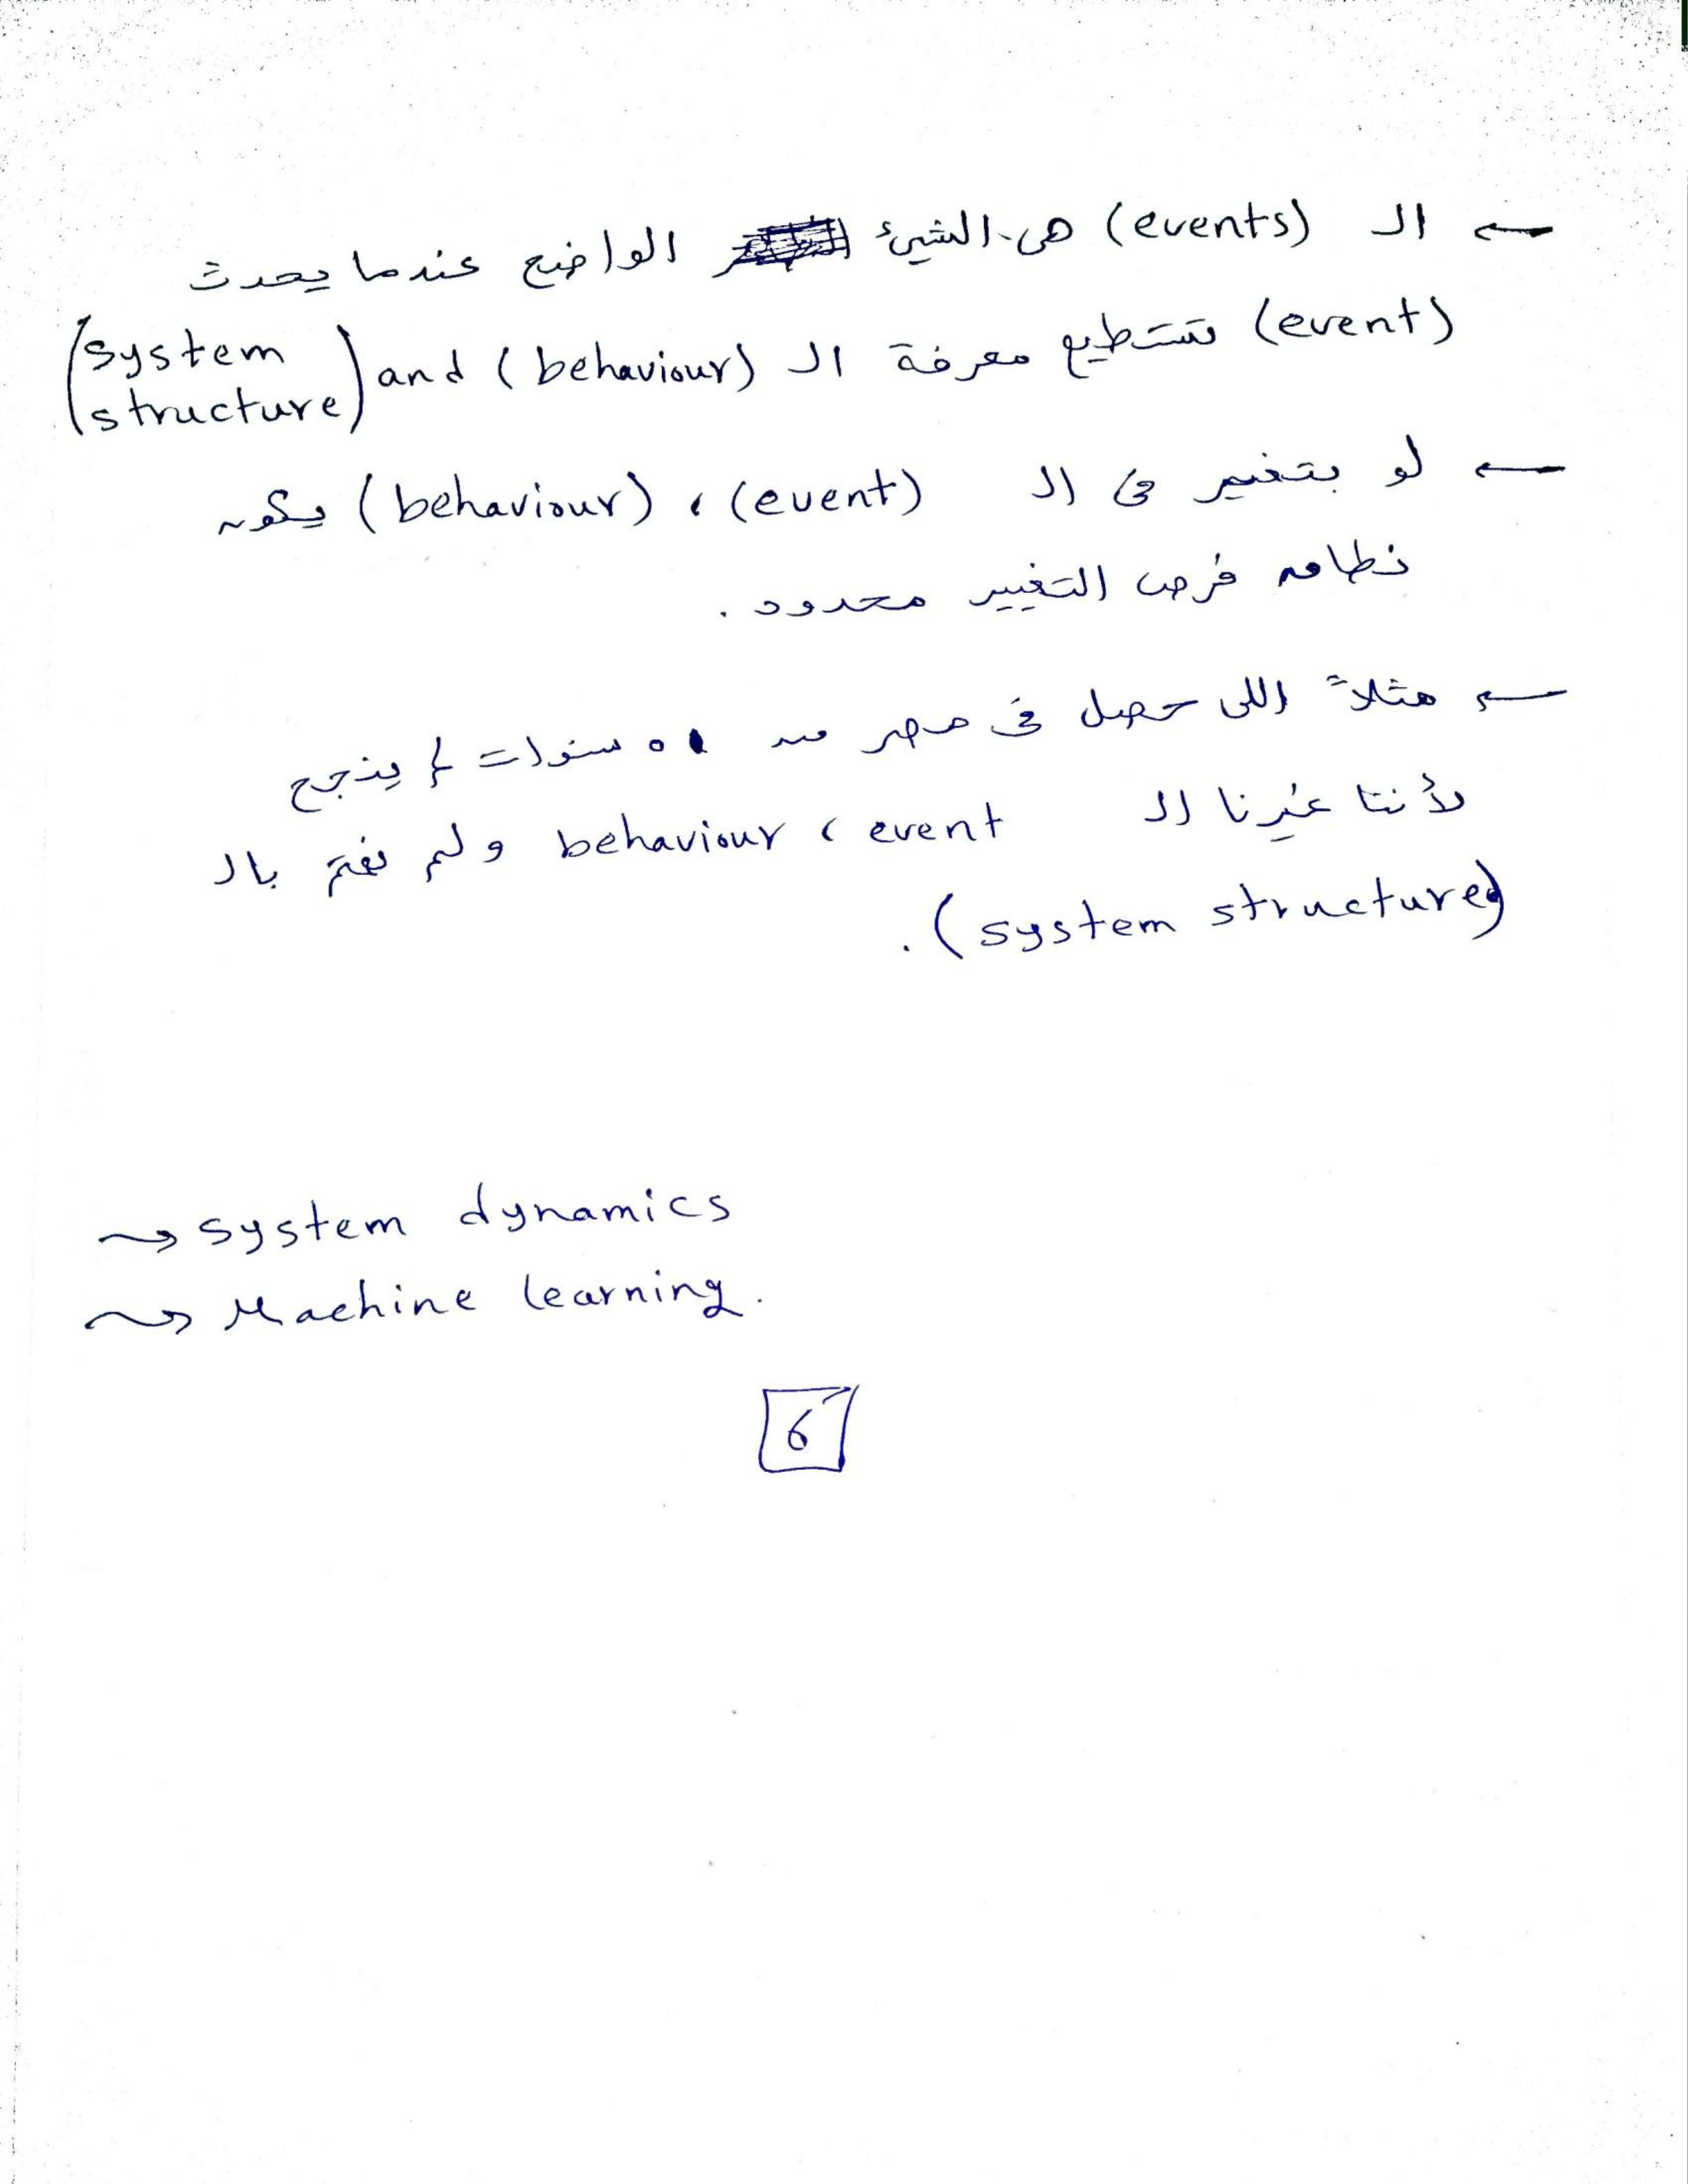 ← الـ (events) هى الشيئ الواضح عندما يحدث
(event) تستطيع معرفة الـ (behaviour) and (system structure)
← لو بتغير فى الـ (event) ، (behaviour) يكون
نطاق فرص التغيير محدود .
← مثلاً اللى حصل فى مصر من ٥ سنوات لم ينجح
لأننا غيرنا الـ event ، behaviour ولم نهتم بالـ
(system structure) .
→ system dynamics
→ Machine learning.
6